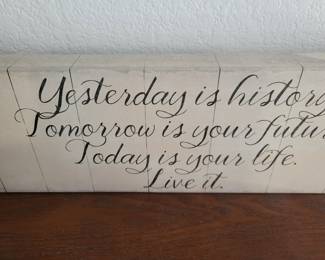 Yesterday is history
Tomorrow is your futur
Today is your life.
Live it.